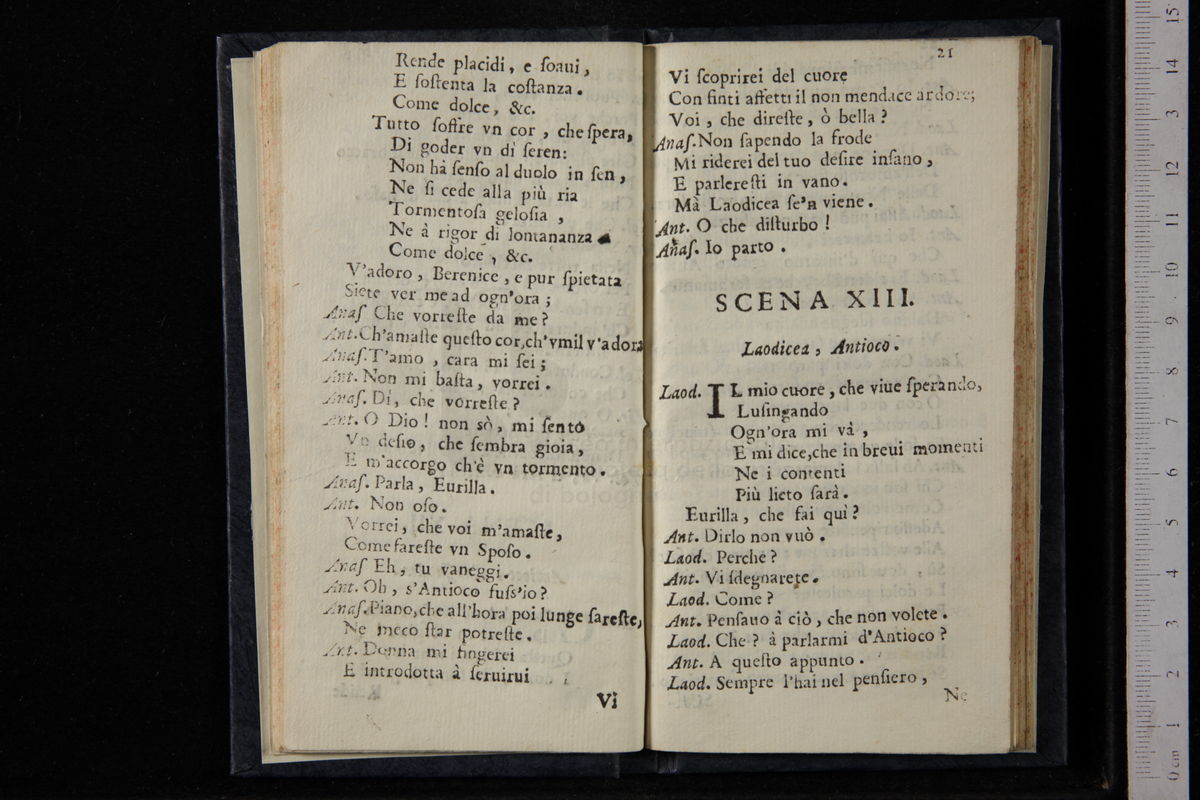 Rende placidi, e ſoaui,
E ſoſtenta la coſtanza.
Come dolce, &c.
Tutto ſoffre vn cor, che ſpera,
Di goder vn dì ſeren:
Non hà ſenſo al duolo in ſen,
Ne ſi cede alla più ria
Tormentoſa geloſia,
Ne à rigor di lontananza
Come dolce, &c.
V'adoro, Berenice, e pur ſpietata
Siete ver me ad ogn'ora;
Anaſ Che vorreſte da me?
Ant. Ch'amaſte queſto cor, ch'vmil v'adora
Anaſ. T'amo, cara mi ſei;
Ant. Non mi baſta, vorrei.
Anaſ. Dì, che vorreſte?
Ant. O Dio! non sò, mi ſento
Vn deſio, che ſembra gioia,
E m'accorgo ch'è vn tormento.
Anaſ. Parla, Eurilla.
Ant. Non oſo.
Vorrei, che voi m'amaſte,
Come fareſte vn Spoſo.
Anaſ Eh, tu vaneggi.
Ant. Oh, s'Antioco fuſs'io?
Anaſ. Piano, che all'hora poi lunge ſareſte,
Ne meco ſtar potreſte.
Ant. Donna mi fingerei
E introdotta à ſeruirui
Vi
21
Vi ſcoprirei del cuore
Con finti affetti il non mendace ardore;
Voi, che direſte, ò bella?
Anaſ. Non ſapendo la frode
Mi riderei del tuo deſire inſano,
E parlereſti in vano.
Mà Laodicea ſe'n viene.
Ant. O che diſturbo!
Anaſ. Io parto.
SCENA XIII.
Laodicea, Antioco.
Laod. IL mio cuore, che viue ſperando,
Luſingando
Ogn'ora mi và,
E mi dice, che in breui momenti
Ne i contenti
Più lieto ſarà.
Eurilla, che fai quì?
Ant. Dirlo non vuò.
Laod. Perche?
Ant. Vi ſdegnarete.
Laod. Come?
Ant. Penſauo à ciò, che non volete.
Laod. Che? à parlarmi d'Antioco?
Ant. A queſto appunto.
Laod. Sempre l'hai nel penſiero,
Ne